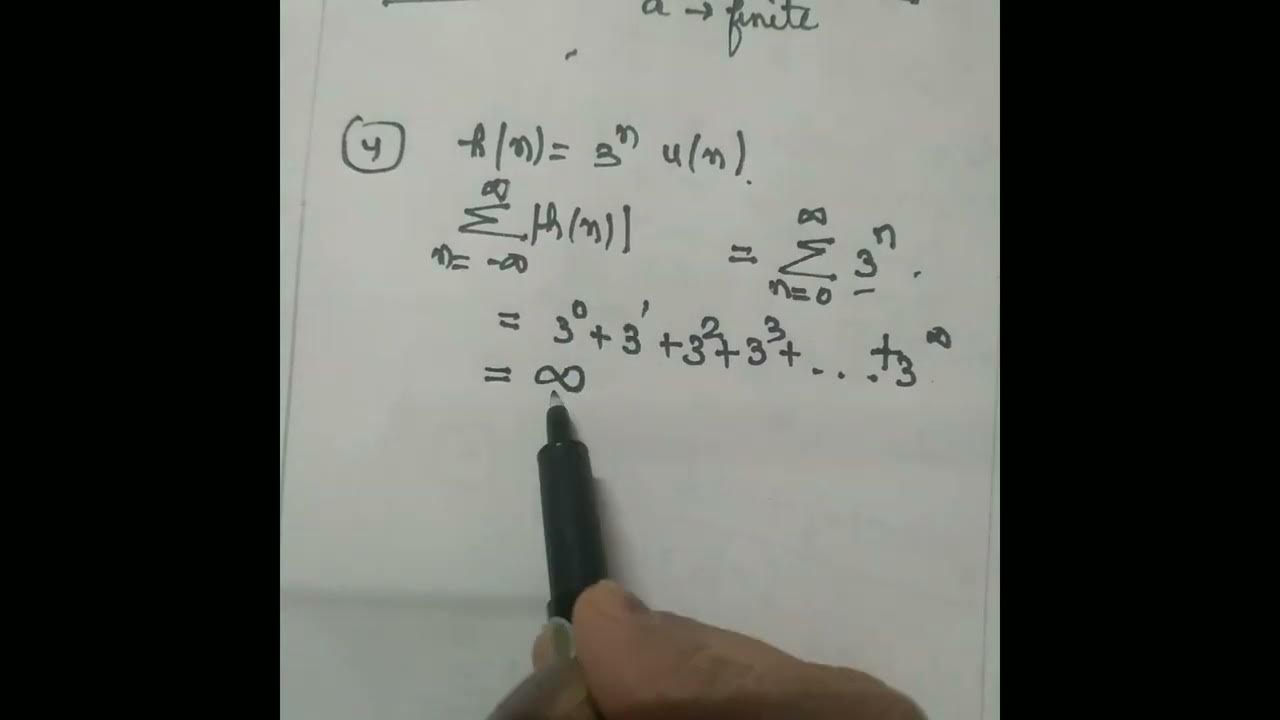 a → finite
4 h(n) = 3ⁿ u(n).
∞ ∑ n = -∞ |h(n)| = ∞ ∑ n = 0 3ⁿ .
= 3⁰ + 3¹ + 3² + 3³ + . . . . + 3^∞
= ∞